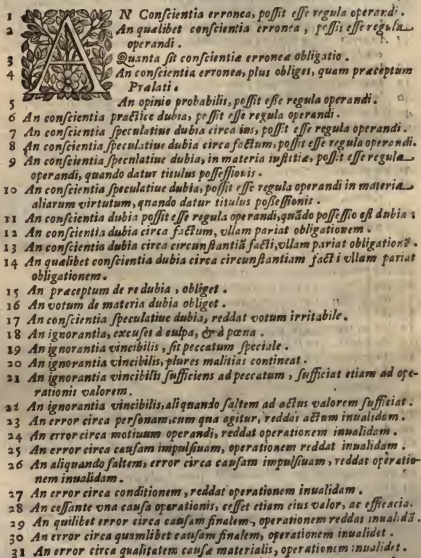 1 AN Conſcientia erronea, poſſit eſſe regula operandi.
2 An quælibet conſcientia erronea, poſſit eſſe regula
operandi.
3 Quanta ſit conſcientiæ erroneæ obligatio.
4 An conſcientia erronea, plus obliget, quam præceptum
Prælati.
5 An opinio probabilis, poſſit eſſe regula operandi.
6 An conſcientia practice dubia, poſſit eſſe regula operandi.
7 An conſcientia ſpeculatiue dubia circa ius, poſſit eſſe regula operandi.
8 An conſcientia ſpeculatiue dubia circa factum, poſſit eſſe regula operandi.
9 An conſcientia ſpeculatiue dubia, in materia iuſtitiæ, poſſit eſſe regula
operandi, quando datur titulus poſſeſſionis.
10 An conſcientia ſpeculatiue dubia, poſſit eſſe regula operandi in materia
aliarum virtutum, quando datur titulus poſſeſſionis.
11 An conſcientia dubia poſſit eſſe regula operandi, quãdo poſſeſſio eſt dubia.
12 An conſcientia dubia circa factum, vllam pariat obligationem.
13 An conſcientia dubia circa circunſtantiã facti, vllam pariat obligationẽ.
14 An quælibet conſcientia dubia circa circunſtantiam facti vllam pariat
obligationem.
15 An præceptum de re dubia, obliget.
16 An votum de materia dubia obliget.
17 An conſcientia ſpeculatiue dubia, reddat votum irritabile.
18 An ignorantia, excuſes à culpa, & à pœna.
19 An ignorantia vincibilis, ſit peccatum ſpeciale.
20 An ignorantia vincibilis, plures malitias contineat.
21 An ignorantia vincibilis ſufficiens ad peccatum, ſufficiat etiam ad ope-
rationis valorem.
22 An ignorantia vincibilis, aliquando ſaltem ad actus valorem ſufficiat.
23 An error circa perſonam, cum qua agitur, reddat actum inualidum.
24 An error circa motiuum operandi, reddat operationem inualidam.
25 An error circa cauſam impulſiuam, operationem reddat inualidam.
26 An aliquando ſaltem, error circa cauſam impulſiuam, reddat operatio-
nem inualidam.
27 An error circa conditionem, reddat operationem inualidam.
28 An ceſſante vna cauſa operationis, ceſſet etiam eius valor, ac efficacia.
29 An quilibet error circa cauſam finalem, operationem reddat inualidã.
30 An error circa quamlibet cauſam finalem, operationem inualidet.
31 An error circa qualitatem cauſæ materialis, operationem inualidet.